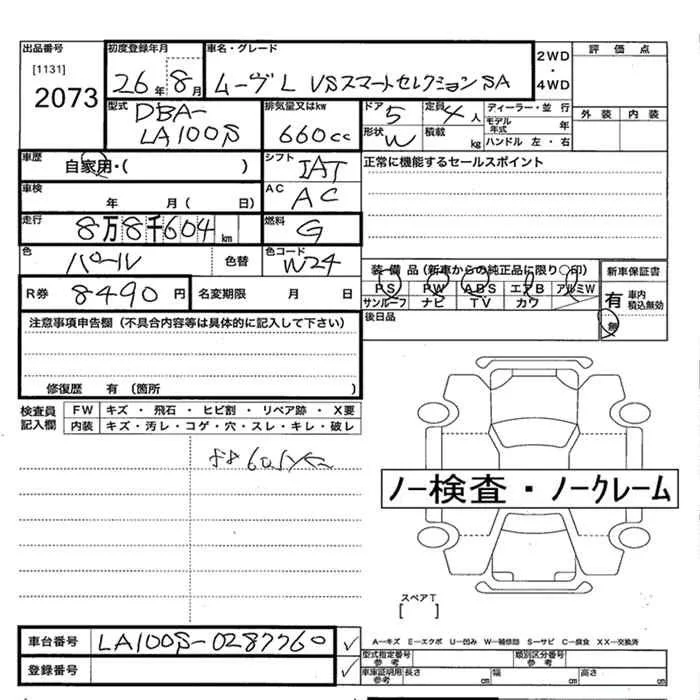 出品番号 初度登録年月 車名・グレード 2WD・4WD 評価点
[1131]
2073
26年8月 ムーヴL VSスマートセレクションSA
型式 DBA-LA100S 排気量又はkw 660cc ドア 5 定員 4人 ディーラー・並行 外装 内装
形状 W 積載 kg モデル年式 年
ハンドル 左・右
車歴 自家用・( ) シフト IAT 正常に機能するセールスポイント
車検 年 月( 日) AC AC
走行 8万8千604km 燃料 G
色 パール 色替 色コード W24 装備品(新車からの純正品に限り○印) 新車保証書
PS PW ABS エアB アルミW 有 車内積込無効
R券 8490円 名変期限 月 日 サンルーフ ナビ TV カワ
無
注意事項申告欄(不具合内容等は具体的に記入して下さい) 後日品
修復歴 有(箇所 )
検査員記入欄 FW キズ・飛石・ヒビ割・リペア跡・X要
内装 キズ・汚レ・コゲ・穴・スレ・キレ・破レ
ノー検査・ノークレーム
スペアT
[ ]
車台番号 LA100S-0287760 ✓ A－キズ E－エクボ U－凹み W－補修跡 S－サビ C－腐食 XX－交換済
登録番号 ✓ 型式指定番号 参考 類別区分番号 参考
車庫証明用 参考 長さ cm 幅 cm 高さ cm